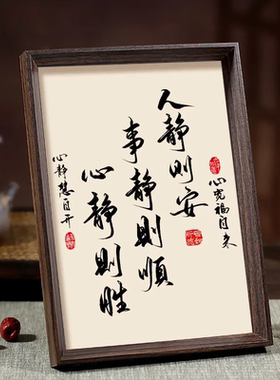 心宽福自来
人静则安
事静则順
心静则胜
心静慧自开